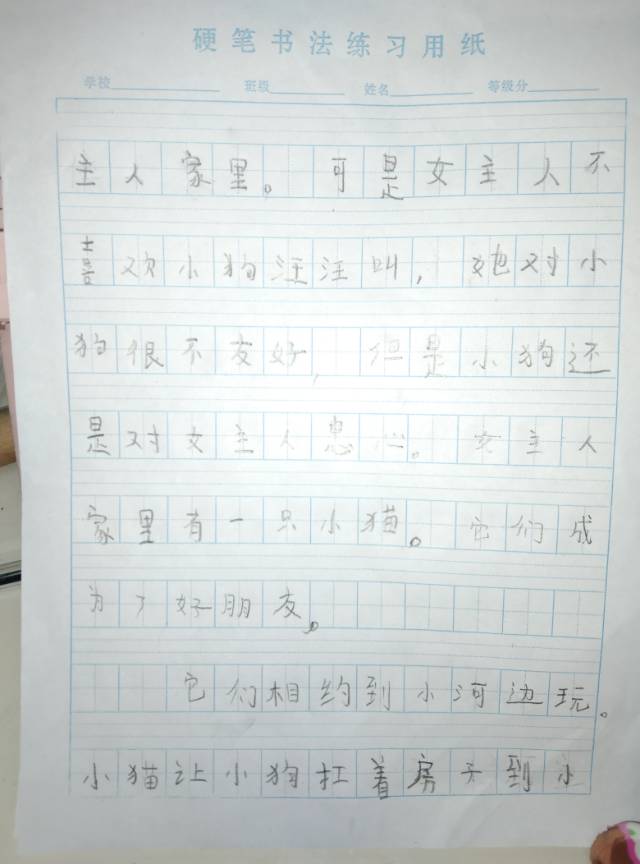 硬笔书法练习用纸
学校 班级 姓名 等级分
主人家里。可是女主人不
喜欢小狗汪汪叫，她对小
狗很不友好，但是小狗还
是对女主人忠心。女主人
家里有一只小猫。它们成
为了好朋友。
它们相约到小河边玩。
小猫让小狗扛着房子到小